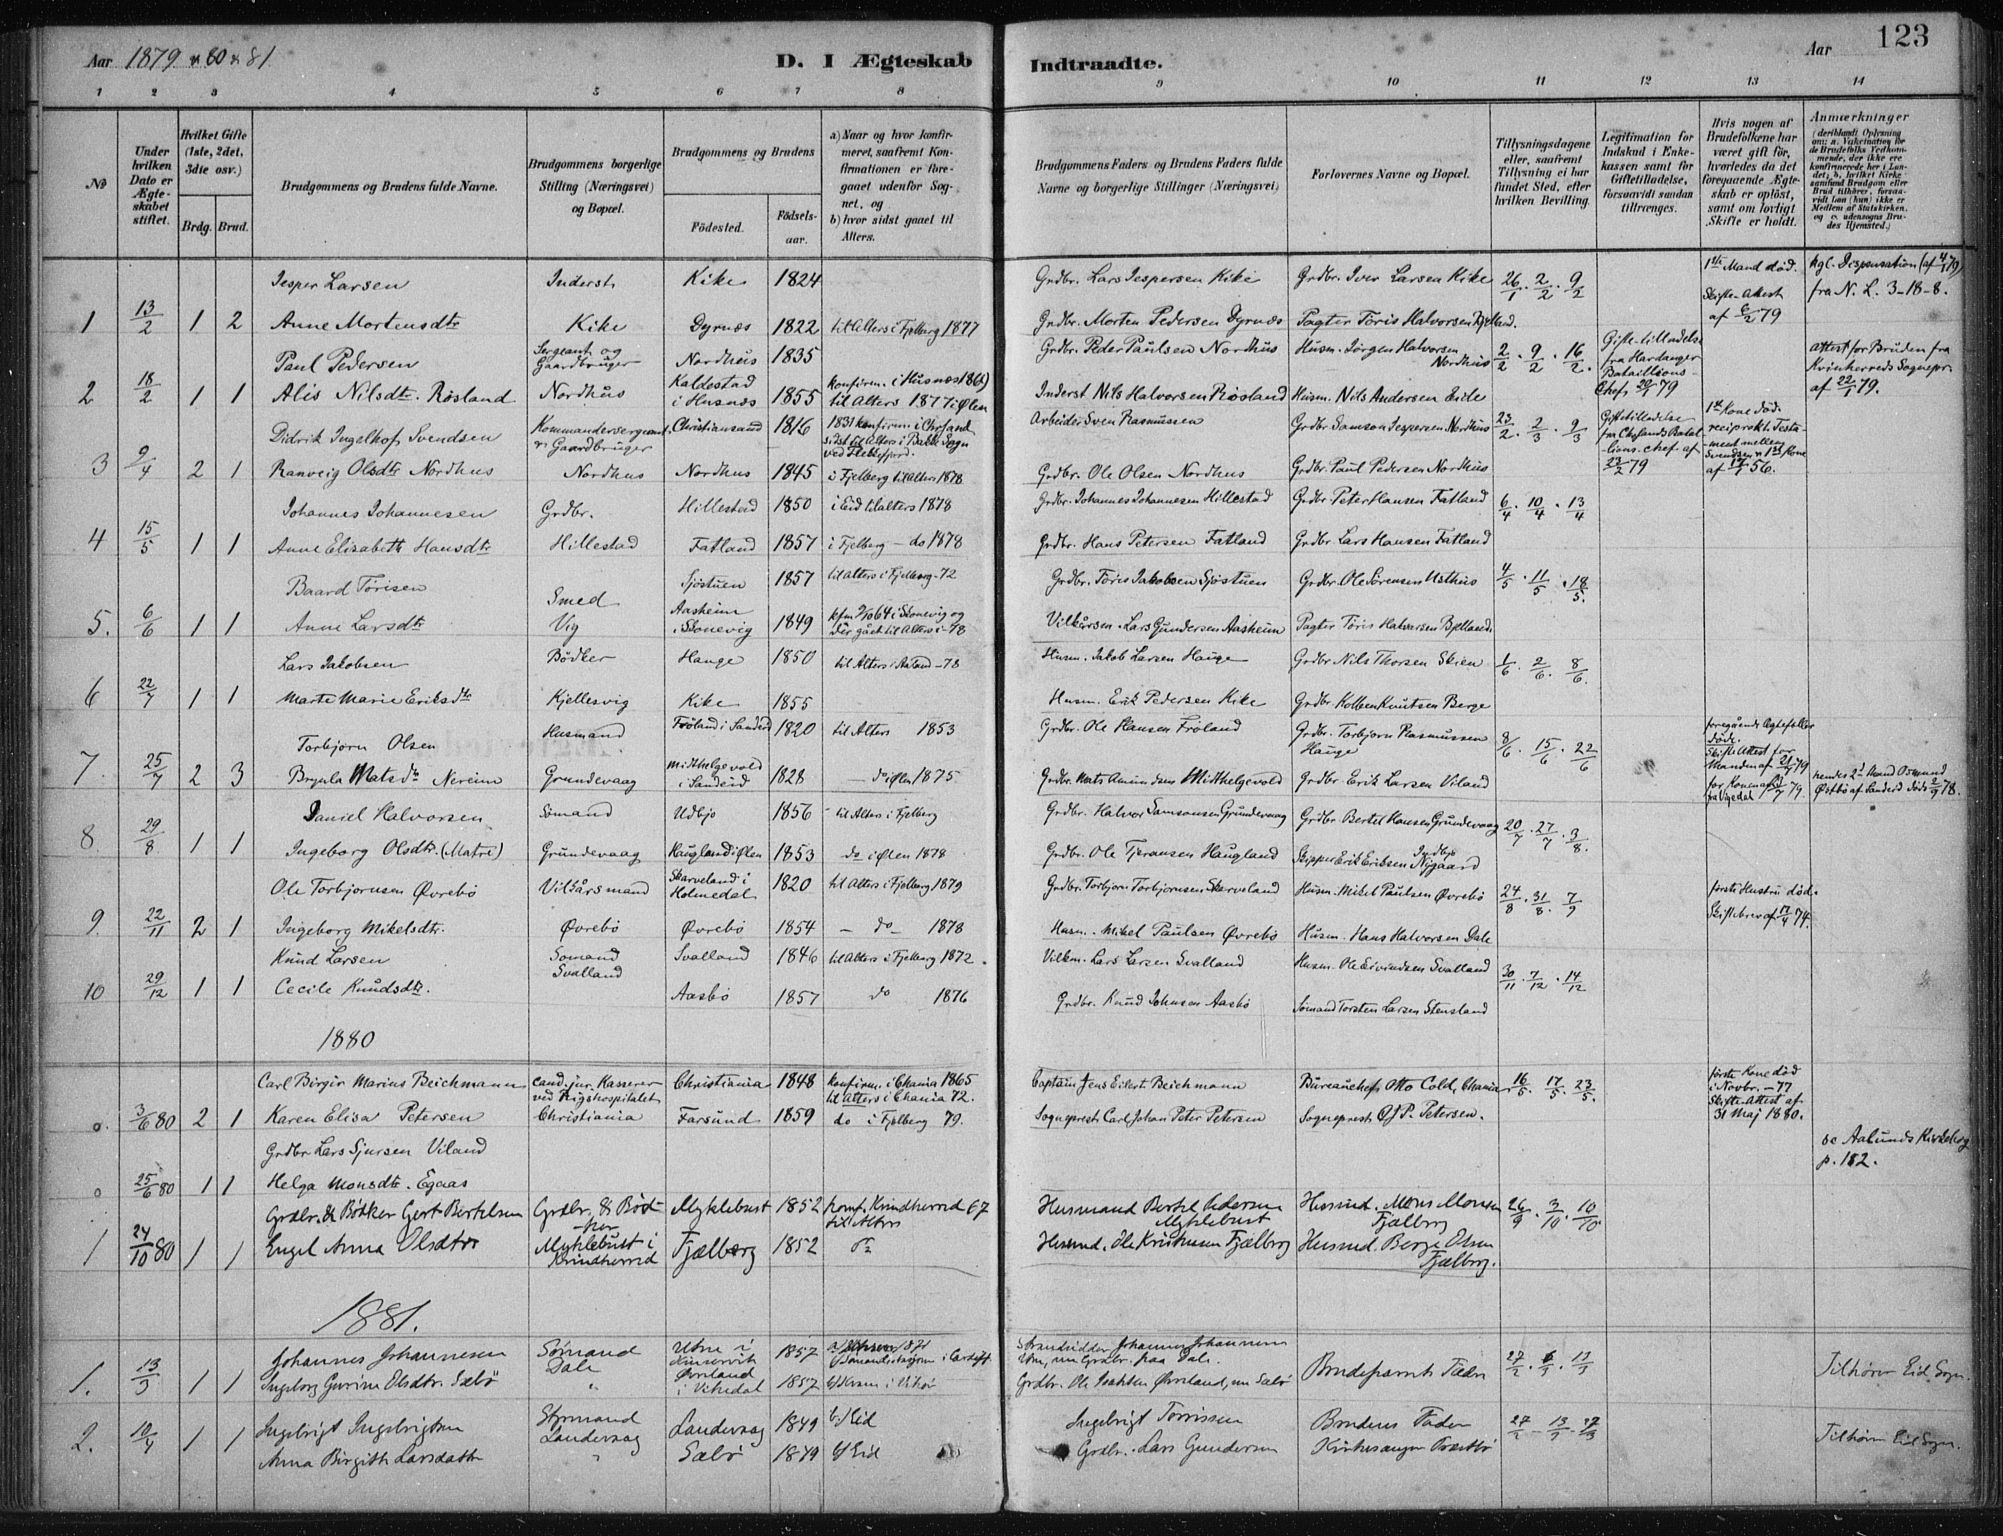 Aar 1879 & 80 & 81.
D. I Ægteskab Indtraadte.
Aar 123
1 2 3 4 5 6 7 8 9 10 11 12 13 14
No
Under hvilken Dato er Ægteskabet stiftet.
Hvilket Gifte (1ste, 2det, 3die osv.)
Brdg. Brud.
Brudgommens og Brudens fulde Navne.
Brudgommens borgerlige Stilling (Næringsvei) og Bopæl.
Brudgommens og Brudens
Födested. Födselsaar.
a) Naar og hvor konfirmeret, saafremt Konfirmationen er foregaaet udenfor Sognet, og
b) hvor sidst gaaet til Alters.
Brudgommens Faders og Brudens Faders fulde Navne og borgerlige Stillinger (Næringsvei)
Forlovernes Navne og Bopæl.
Tillysningsdagene eller, saafremt Tillysning ei har fundet Sted, efter hvilken Bevilling.
Legitimation for Indskud i Enkekassen samt for Giftetilladelse, forsaavidt saadan tiltrænges.
Hvis nogen af Brudefolkene har været gift för, hvorledes da det foregaaende Ægteskab er oplöst, samt om lovligt Skifte er holdt.
Anmærkninger
(deriblandt Oplysning om: a. Vakcination for de Brudefolks Vedkommende, der ikke ere konfirmerede her i Landet; b. hvilket Kirkesamfund Brudgom eller Brud tilhörer, forsaavidt han (hun) ikke er Medlem af Statskirken. og c. udensogns Brudes Hjemsted.)
Jesper Larsen Inderst Kike 1824 Grdbr. Lars Jespersen Kike Grdbr. Iver Larsen Kike 26/1 . 2/2 . 9/2 1ste Mand död. Skifte-Attest af 6/2 79 kgl. Dispensation (af 4/1 79) fra N. L. 3-18-8.
1 13/2 1 2 Anne Mortensdtr Kike Dyrnæs 1822 til Alters i Fjelberg 1877 Grdbr. Morten Pedersen Dyrnæs Pagter Töris Halvorsen Bjelland.
Paul Pedersen Sergeant og Gaardbruger Nordhus 1835 Grdbr. Peder Paulsen Nordhus Husm. Jörgen Halvorsen Nordhus 2/2 . 9/2 . 16/2. Gifte-tilladelse fra Hardanger Bataillions-Chef 20/1 79 attest for Bruden fra Kvinherreds Sognepr. af 22/1 79.
2 18/2 1 1 Alis Nilsdtr. Røsland Nordhus Kaldestad i Husnæs 1855 konfirm. i Husnæs til Alters 1877 i Ølen Inderst Nils Halvorsen Røsland Husm. Nils Andersen Eide
Didrik Ingelhof Svendsen Kommandersergeant & Gaardbruger Christiansand 1816 1831 konfirm. i Chrsand, sidst til Alters i Bakke Sogn ved Flekkefjord. Arbeider Sven Rasmussen Grdbr Samson Jespersen Nordhus 23/2 . 2/3 . 9/3 Giftetilladelse fra Chrsands Bataillions-chef af 23/2 79 1ste Kone död. reciprokt Testament mellem Svendsen & 1ste Kone af 56.
3 9/4 2 1 Ranveig Olsdtr Nordhus Nordhus Nordhus 1845 i Fjelberg til Alters 1878 Grdbr. Ole Olsen Nordhus Grdbr. Paul Pedersen Nordhus
Johannes Johannesen Grdbr. Hillestad 1850 i Eid til alters 1878 Grdbr. Johannes Johannesen Hillestad Grdbr. Peter Hansen Fatland 6/4 . 10/4 . 13/4
4 15/5 1 1 Anne Elisabeth Hansdtr Hillestad Fatland 1857 i Fjelberg - do 1878 Grdbr. Hans Petersen Fatland Grdbr. Lars Hansen Fatland
Baard Törisen Smed Sjöstuen 1857 til Alters i Fjelberg -72 Grdbr. Töris Jakobsen Sjöstuen Grdbr. Ole Sörensen Usthus 4/5 . 11/5 . 18/5.
5. 6/6 1 1 Anne Larsdtr Vig Aasheim i Skonevig 1849 i Skonevig og der gået til Alters i -78 Vilkårsm. Lars Gundersen Aasheim Pagter Töris Halvorsen Bjelland.
Lars Jakobsen Bödker Hauge 1850 til Alters i -78 Husm. Jakob Larsen Hauge Grdbr. Nils Thorsen Skien 1/6 . 2/6 . 8/6.
6 22/7 1 1 Marte Marie Eriksdtr Kjellesvig Kike 1855 Husm. Erik Pedersen Kike Grdbr. Kolben Knutsen Berge
Torbjörn Olsen Husmand Fröland i Sandeid 1820 til Alters 1853 Grdbr. Ole Hansen Fröland Grdbr. Torbjörn Rasmussen Hauge 8/6 . 15/6 . 22/6 foregående Ægtefæller döde. Skifte Attest for Manden af 21/7 79 for Konen af 79. fra Vigedal hendes 2den Mand Osmund Østbö af Sandeid döde 2/9 78.
7. 25/7 2 3 Brynla Matsdtr Nereim Grundevaag Midthelgevold i Sandeid 1828 - do Ølen 1875 Grdbr. Mats Amundsen Midthelgevold Grdbr. Erik Larsen Viland
Daniel Halvorsen Sömand Udbjo 1856 - til Alters i Fjelberg Grdbr. Halvor Samsonsen Grundevaag Grdbr Bertel Hansen Grundevaag 20/7 . 27/7 . 3/8.
8. 29/8 1 1 Ingeborg Olsdtr. (Matre) Grundevaag Haugland i Ølen 1853 do i Ølen 1878 Grdbr. Ole Tjeransen Haugland Skipper Erik Eriksen Nygaard Indbjo
Ole Torbjörnsen Øvrebö Vilkårsmand Skarveland i Holmedal 1820 til Alters i Fjelberg 1879 Grdbr. Torbjörn Torbjörnsen Skarveland Husm. Mikel Paulsen Øvrebö 24/8 . 31/8 . 7/9 förste Hustru död. Skiftebrev af 17/4 74.
9. 22/11 2 1 Ingeborg Mikelsdtr. Øvrebö Øvrebö 1854 - do - 1878 Husm. Mikel Paulsen Øvrebö Husm. Hans Halvorsen Dale
Knud Larsen Sömand Svalland Svalland 1846 til Alters i Fjelberg 1872. Vilkm. Lars Larsen Svalland Husm. Ole Eivindsen Svalland 30/11 . 7/12 . 14/12
10 29/12 1 1 Cecile Knudsdtr. Aasbö 1857 do 1876 Grdbr. Knud Johnsen Aasbö Sömand Torsten Larsen Stensland
1880
Carl Birgir Marius Beichmann cand. jur. Kasserer ved Rigshospitalet Christiania 1848 konfirm. i Chania 1865 til Alters i Chania 72. Captain Jens Eilert Beichmann Bureauchef Otto Cold, Chania 16/5 . 17/5 . 23/5. förste Kone död i Novbr. -77 Skifte-Attest af 31 Maj 1880.
0. 3/6 80 2 1 Karen Elisa Petersen Christiania Farsund 1859 do i Fjelberg 79. Sogneprest Carl Johan Peter Petersen Sogneprest C.J.P. Petersen.
Grdbr Lars Sjursen Viland
0 25/6 80 1 1 Helga Monsdtr. Egaas se Aalunds Kirkebog p. 182.
Grdbr. & Bödker Gert Bertelsen Grdbr. & Bödker Myklebust 1852 konf. Kvindherred 67 til Alters Husmand Bertel Pedersen Myklebust Husmd. Möns Monsen Fjælberg 26/9 . 3/10 . 10/10.
1 24/10 80 1 1 Engel Anna Olsdtr Myklebust i Kvindherred Fjælberg 1852 Husmd. Ole Kristensen Fjælberg Husmd. Berge Olsen Fjælberg.
1881.
Johannes Johannesen Sømand Dale Utne i Kinservik 1857 Sømandskirken i Cardiff Strandsidder Johannes Johannesen Utne, nu Grdbr. paa Dale. Brudeparrets Fædre 27/2 . 6/3 . 13/3
1. 13/3 1 1 Ingeborg Gurine Olsdtr. Sæbö " Øvrland i Vikedal 1857 Grdbr. Ole Isaksen Øvrland, nu Sæbö Tilhører Eid Sogn.
Ingebrigt Ingebrigtsen Styrmand Landevaag Landevaag 1849 b/ Eid Ingebrigt Torrissen Brudens Fader 27/2 - 13/3 - 27/3
2. 10/4 1 1 Anna Birgith Larsdatter " Sæbö 1879 b/ Eid Grdbr. Lars Gundersen Kirkesanger Tilhører Eid Sogn.